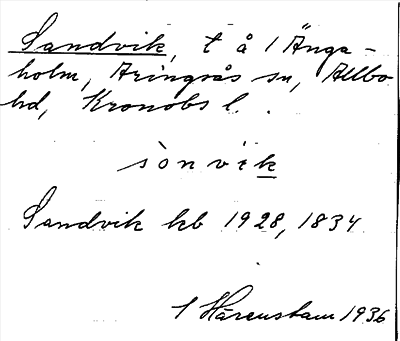 Sandvik, t å / Änga-
holm, Aringsås sn, Allbo
hd, Kronobs l.
sònvik
Sandvik kb 1928, 1834
I Härenstam 1936